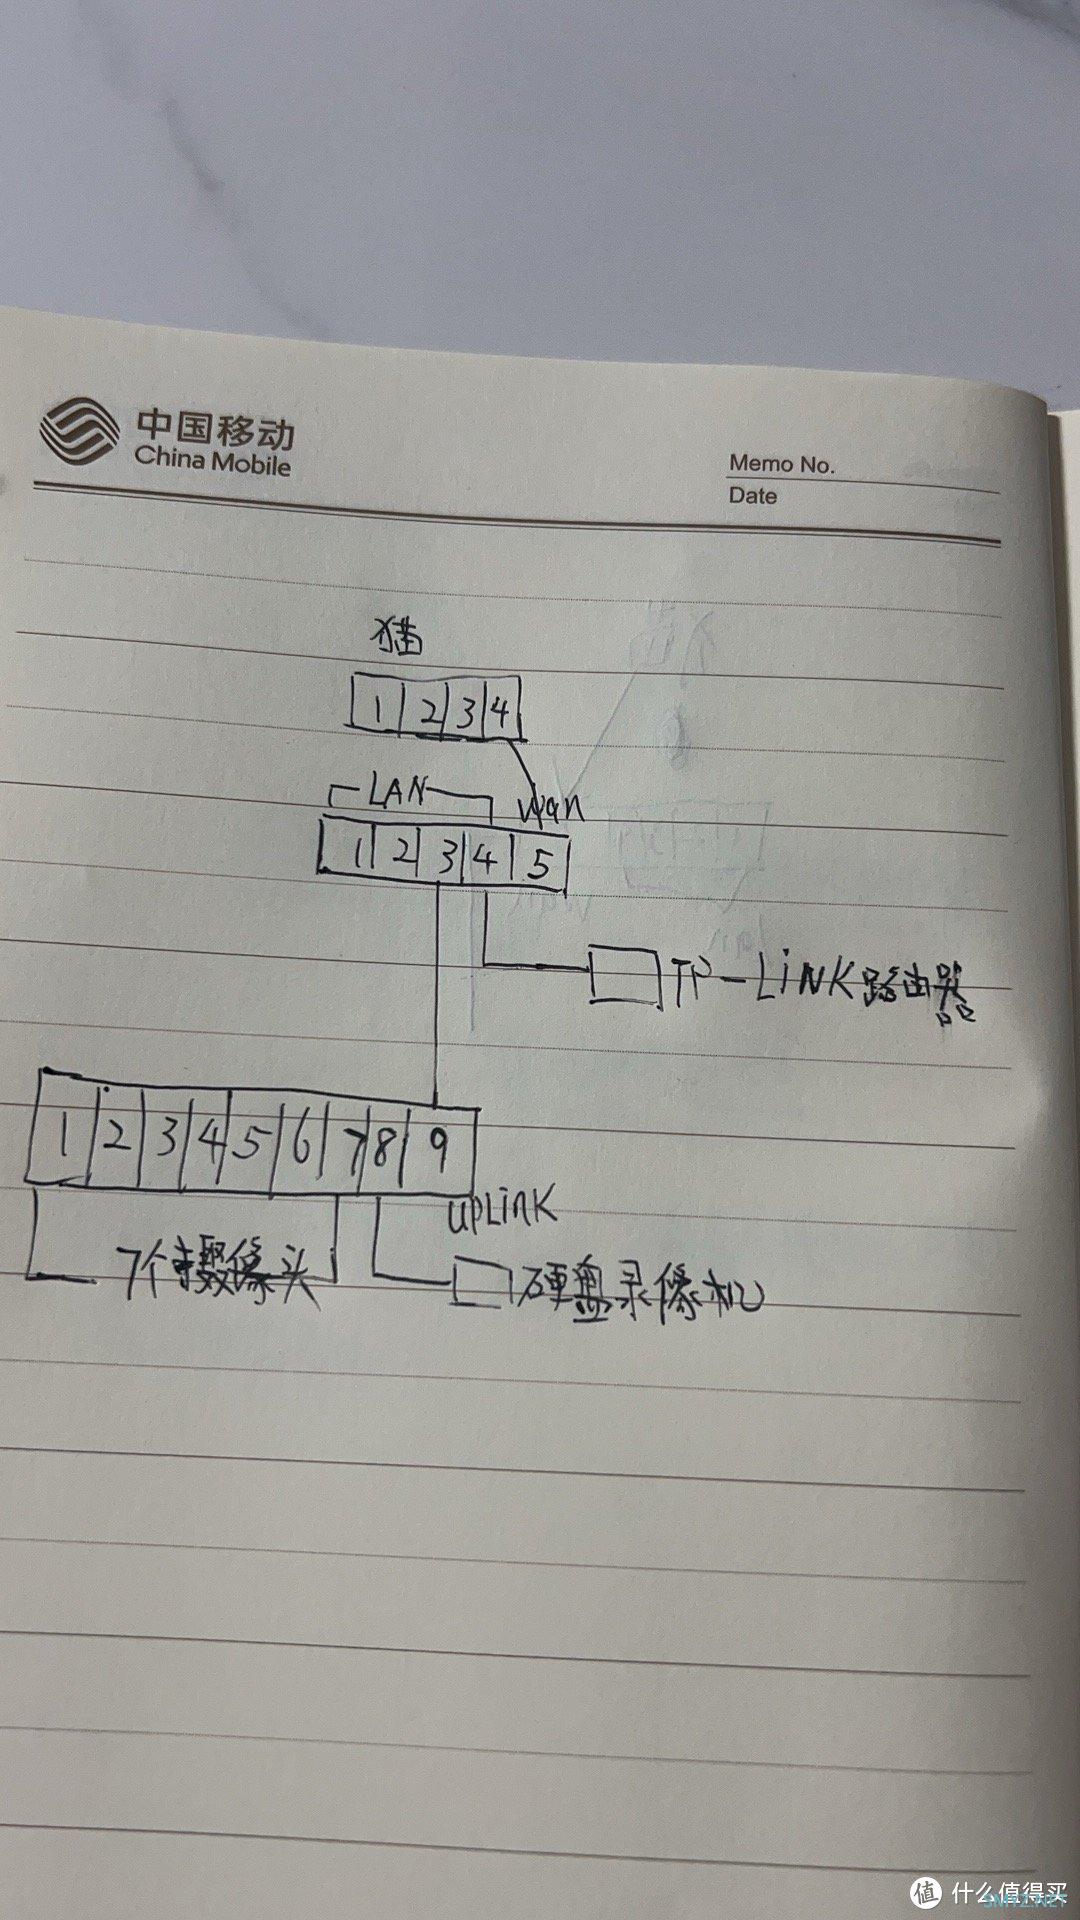 中国移动
China Mobile
Memo No.
Date
猫
1 2 3 4
LAN Wan
1 2 3 4 5
TP-LiNK路由器
1 2 3 4 5 6 7 8 9
UPLinK
7个摄像头
硬盘录像机
值 什么值得买
SMYZ.NET